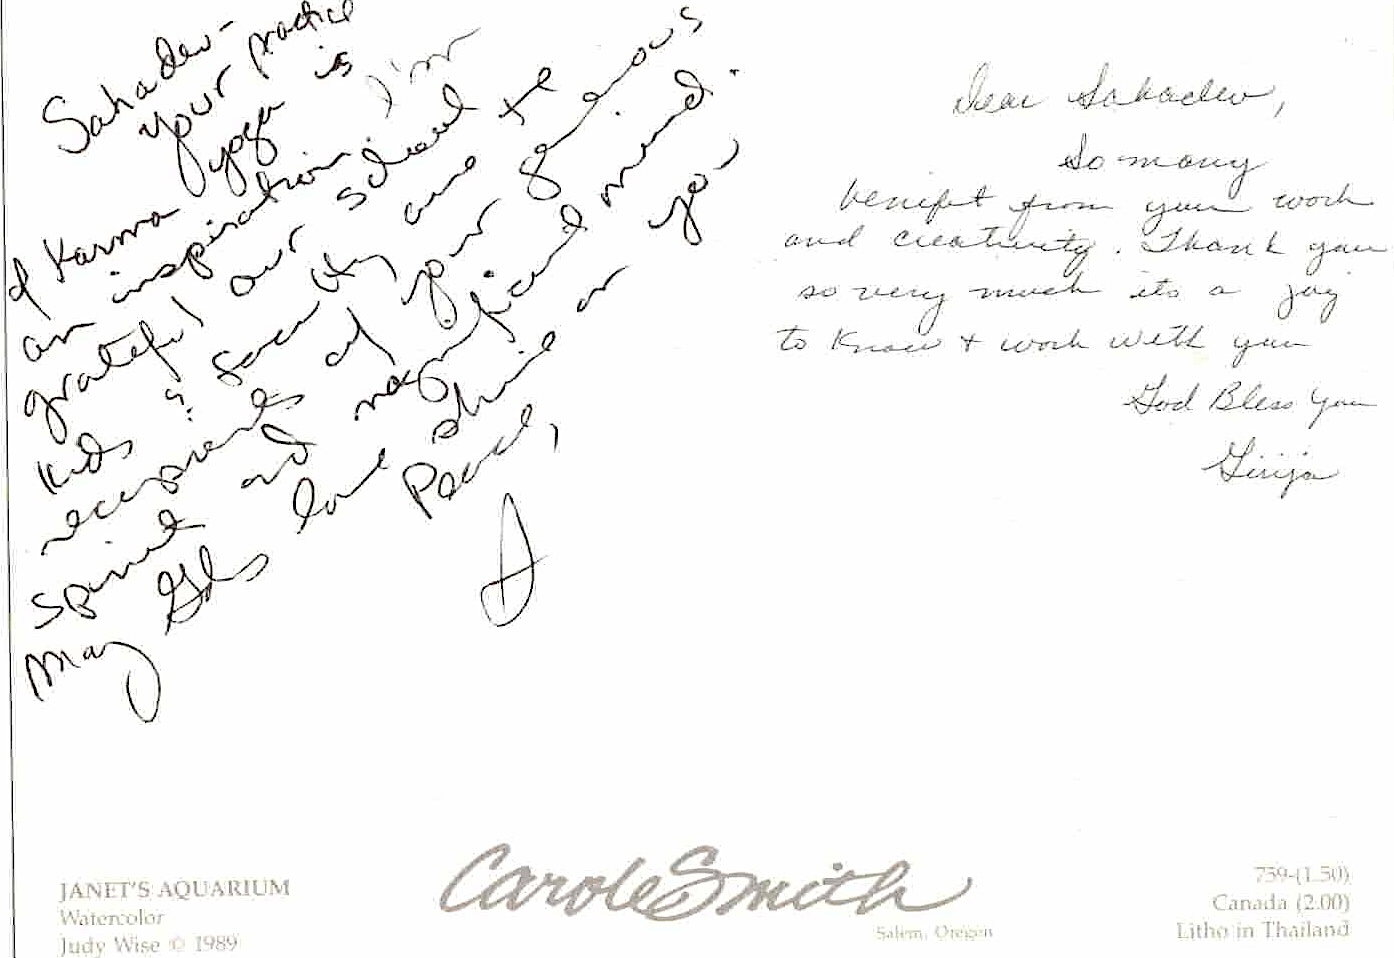 Sahadev-
your practice
of Karma yoga is
an inspiration. I'm
grateful our school
kids & society are the
recipients of your generous
spirit and magnificent mind.
May God's love shine on you,
Peace,
Dear Sahadev,
So many
benifet from your work
and creativity. Thank you
so very much its a joy
to know + work with you
God Bless You
Girija
JANET'S AQUARIUM
Watercolor
Judy Wise © 1989
Carole Smith
Salem, Oregon
759-(1.50)
Canada (2.00)
Litho in Thailand